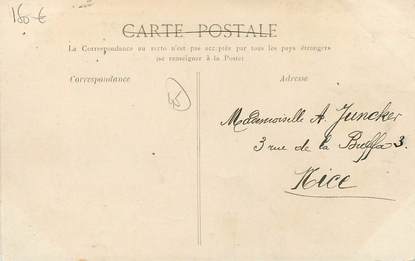 150 €
CARTE POSTALE
La Correspondance au recto n'est pas acceptée par tous les pays étrangers
(se renseigner à la Poste)
Correspondance
Adresse
45
Mademoiselle A. Juncker
3 rue de la Buffa 3.
Nice